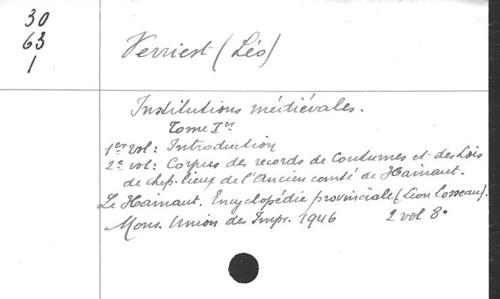 30
63
1
Verriest (Léo)
Institutions médiévales.
Tome Ier
1er vol: Introduction
2e vol: Corpus des records de Coutumes et des Lois
de chefs-lieux de l'Ancien comté de Hainaut.
Le Hainaut. Encyclopédie provinciale (Léon Losseau).
Mons. Union des Impr. 1946 2 vol 8°